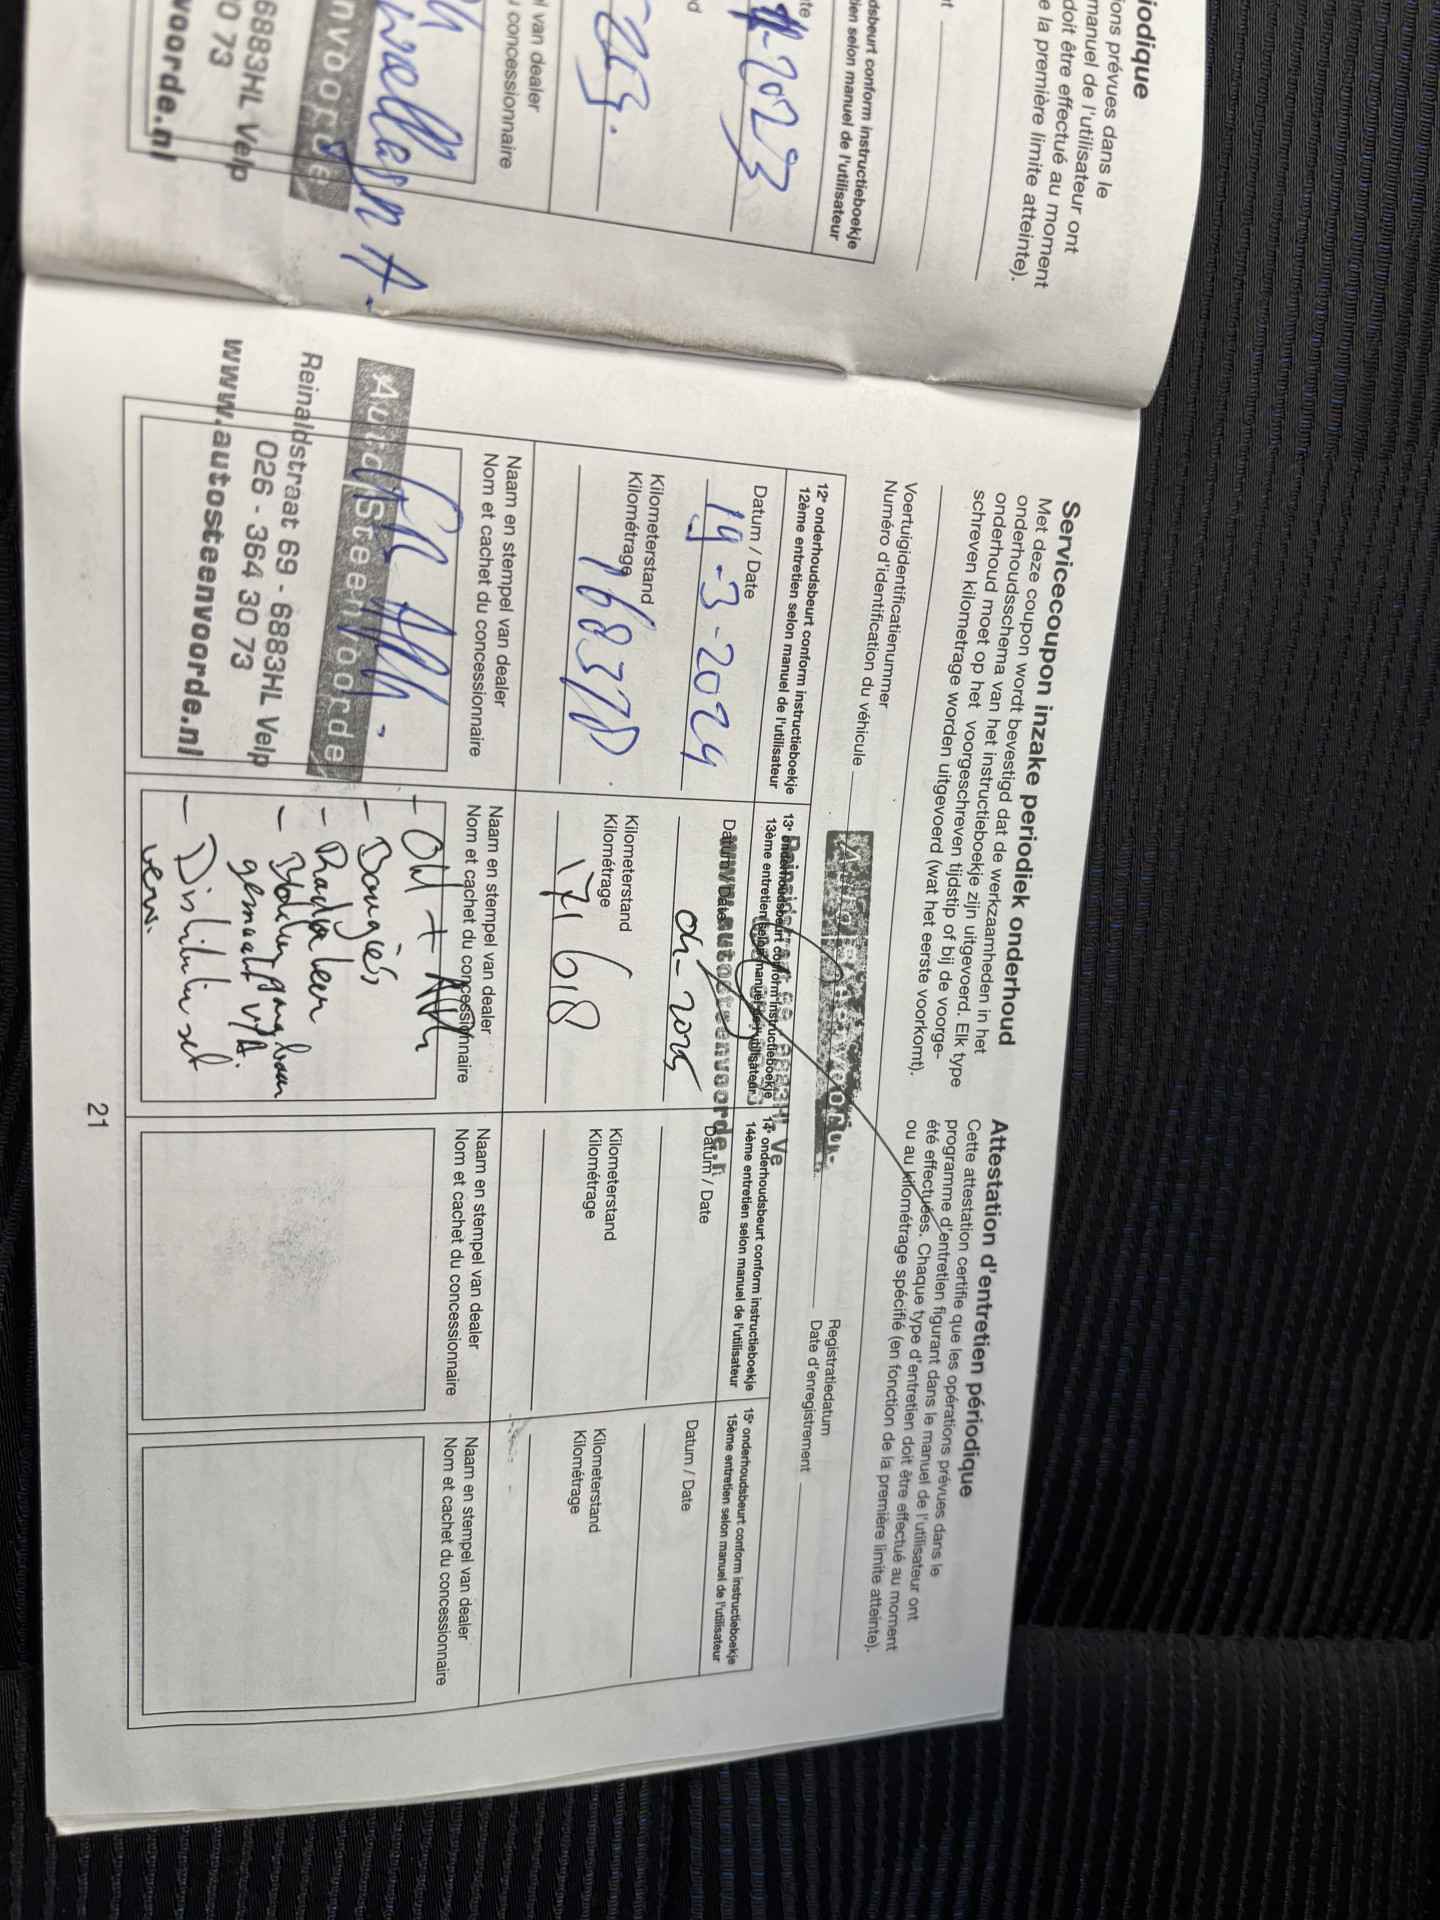 iodique
ions prévues dans le
manuel de l'utilisateur ont
doit être effectué au moment
e la première limite atteinte).
dsbeurt conform instructieboekje
ien selon manuel de l'utilisateur
-2023
l van dealer
u concessionnaire
nvoorde
6883HL Velp
0 73
voorde.nl
Servicecoupon inzake periodiek onderhoud
Met deze coupon wordt bevestigd dat de werkzaamheden in het
onderhoudsschema van het instructieboekje zijn uitgevoerd. Elk type
onderhoud moet op het voorgeschreven tijdstip of bij de voorge-
schreven kilometrage worden uitgevoerd (wat het eerste voorkomt).
Attestation d'entretien périodique
Cette attestation certifie que les opérations prévues dans le
programme d'entretien figurant dans le manuel de l'utilisateur ont
été effectuées. Chaque type d'entretien doit être effectué au moment
ou au kilométrage spécifié (en fonction de la première limite atteinte).
Voertuigidentificatienummer
Numéro d'identification du véhicule
Registratiedatum
Date d'enregistrement
12e onderhoudsbeurt conform instructieboekje
12ème entretien selon manuel de l'utilisateur
Datum / Date
19-3-2024
Kilometerstand
Kilométrage
168378
Naam en stempel van dealer
Nom et cachet du concessionnaire
Auto Steenvoorde
Reinaldstraat 69 - 6883HL Velp
026 - 364 30 73
www.autosteenvoorde.nl
13e onderhoudsbeurt conform instructieboekje
13ème entretien selon manuel de l'utilisateur
Datum / Date
04-2025
Kilometerstand
Kilométrage
171618
Naam en stempel van dealer
Nom et cachet du concessionnaire
- Bougies
gemaakt v/A
- Distributie set
verv.
14e onderhoudsbeurt conform instructieboekje
14ème entretien selon manuel de l'utilisateur
Datum / Date
Kilometerstand
Kilométrage
Naam en stempel van dealer
Nom et cachet du concessionnaire
15e onderhoudsbeurt conform instructieboekje
15ème entretien selon manuel de l'utilisateur
Datum / Date
Kilometerstand
Kilométrage
Naam en stempel van dealer
Nom et cachet du concessionnaire
21